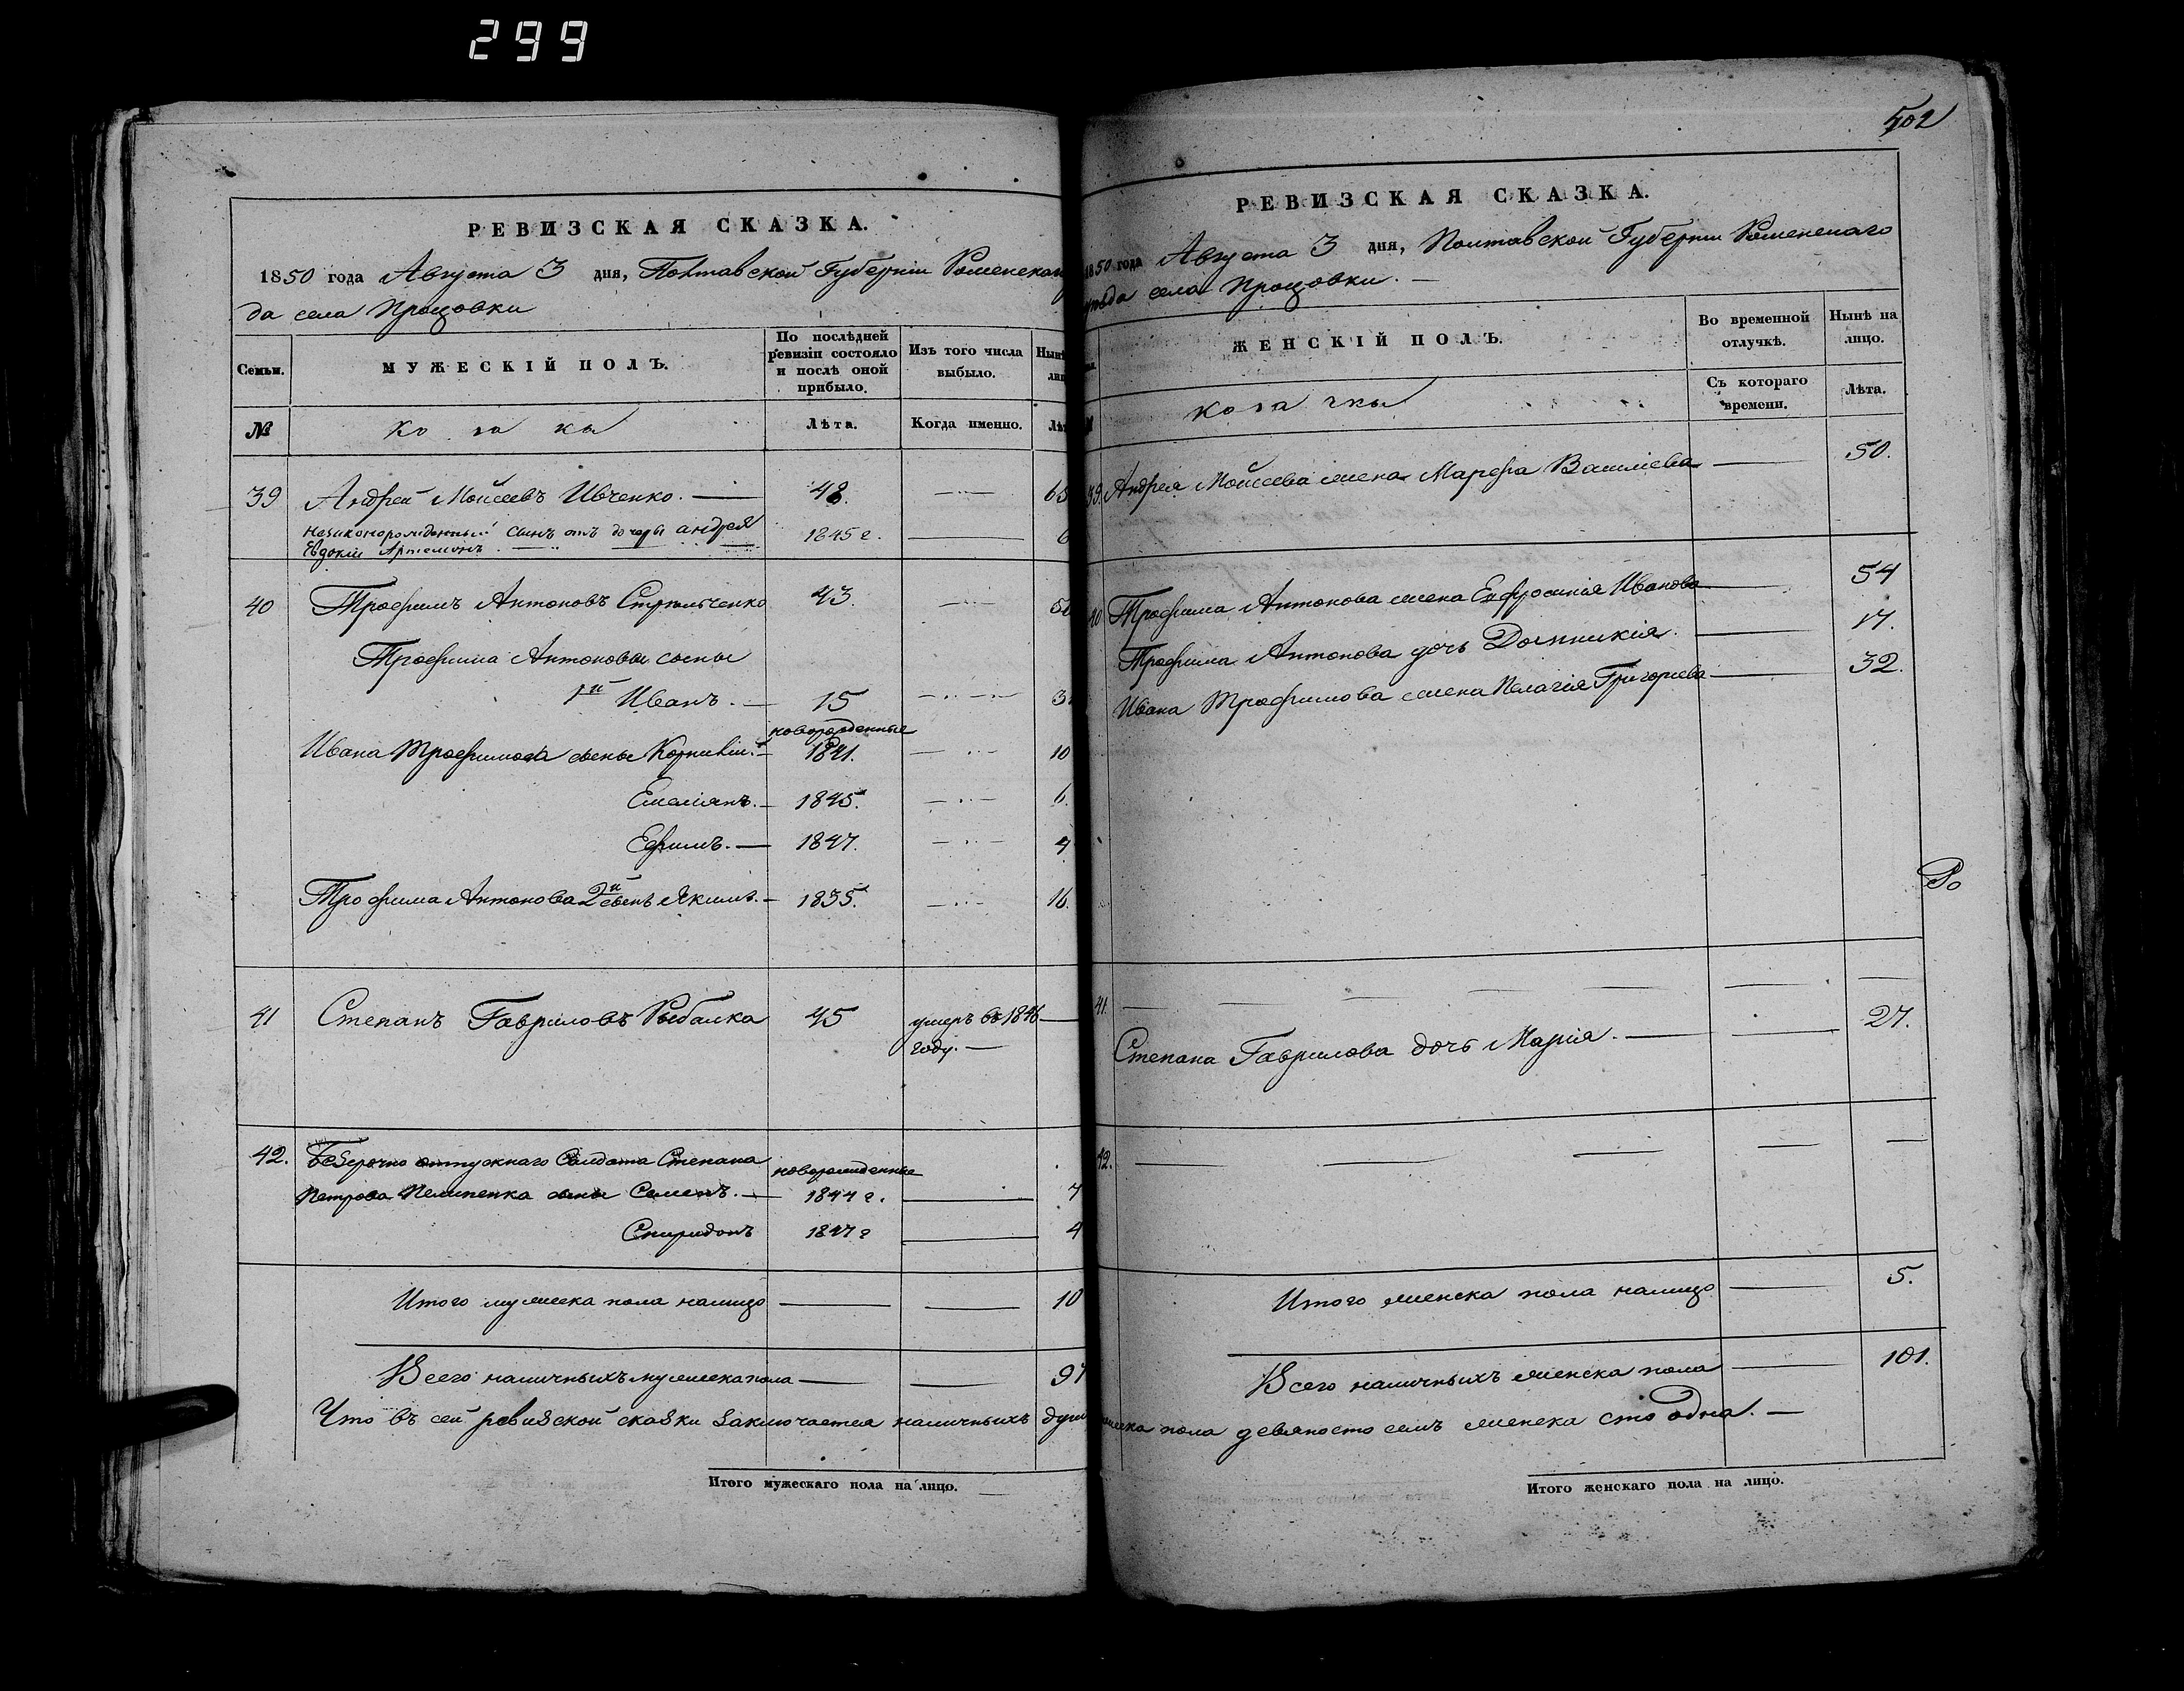 299
502
РЕВИЗСКАЯ СКАЗКА.
1850 года Августа 3 дня, Полтавской Губерніи Роменскаго
да села Процовки
Семьи.
МУЖЕСКІЙ ПОЛЪ.
По послѣдней ревизіи состояло и послѣ оной прибыло.
Изъ того числа выбыло.
Нынѣ
№
Козаки
Лѣта.
Когда именно.
39 Андрей Моисеевъ Ивченко. 48. 65
незаконорожденный сынъ отъ дочери андрея 1845 г. 6
Евдокіи Артемонъ
40 Трофимъ Антоновъ Стрельченко 43.
Трофима Антонова сыны
1й Иванъ. 15
новорожденные
Ивана Трофимова сыны Корнилій. 1841. 10
Емеліянъ. 1845. 6.
Ефимъ. 1847. 4
Трофима Антонова 2й сынъ Якимъ. 1835. 16.
41 Степанъ Гавриловъ Рыбалка 45 умеръ въ 1846
году.
42. Безсрочно отпускнаго Солдата Степана новорожденные
Петрова Пелипенка сыны Семенъ. 1844 г. 7
Спиридонъ 1847 г 4
Итого мужеска пола налицо 10
Всего наличныхъ мужеска пола 97
Что въ сей ревизской сказки заключается наличныхъ душъ
Итого мужескаго пола на лицо.
РЕВИЗСКАЯ СКАЗКА.
1850 года Августа 3 дня, Полтавской Губерніи Роменскаго
уѣзда села Процовки.
ЖЕНСКІЙ ПОЛЪ.
Во временной отлучкѣ.
Нынѣ на лицо.
козачки
Съ котораго времени.
Лѣта.
39. Андрея Мойсеева жена Марфа Василіева 50.
40 Трофима Антонова жена Ефросинія Иванова 54
Трофима Антонова дочь Домникія. 17.
Ивана Трофимова жена Пелагія Григоріева 32.
Ро
41.
Степана Гаврилова дочь Марія. 27.
42.
Итого женска пола налицо 5.
Всего наличныхъ женска пола 101.
мужеска пола девяносто семъ женска сто одна.
Итого женскаго пола на лицо.